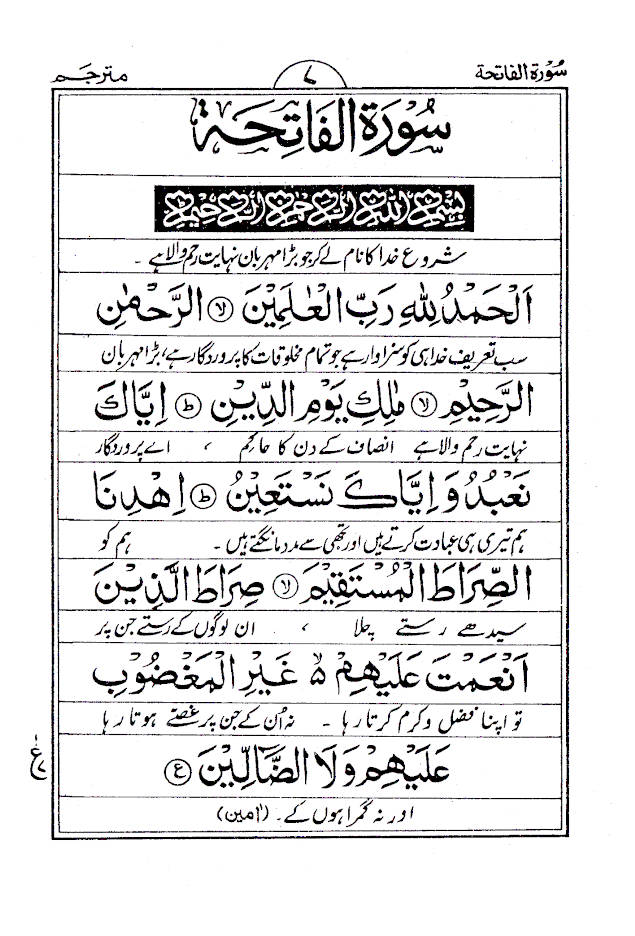 سُوْرَةُ الفَاتِحَة ۷ مترجم
سُوْرَةُ الْفَاتِحَة
بِسْمِ اللهِ الرَّحْمٰنِ الرَّحِيْمِ
شروع خدا کا نام لے کر جو بڑا مہربان نہایت رحم والا ہے ۔
اَلْحَمْدُ لِلّٰهِ رَبِّ الْعٰلَمِيْنَ ۙ الرَّحْمٰنِ
سب تعریف خدا ہی کو سزاوار ہے جو تمام مخلوقات کا پروردگار ہے، بڑا مہربان
الرَّحِيْمِ ۙ مٰلِكِ يَوْمِ الدِّيْنِ ؕ اِيَّاكَ
نہایت رحم والا ہے انصاف کے دن کا حاکم ، اے پروردگار
نَعْبُدُ وَ اِيَّاكَ نَسْتَعِيْنُ ؕ اِهْدِنَا
ہم تیری ہی عبادت کرتے ہیں اور تجھی سے مدد مانگتے ہیں ۔ ہم کو
الصِّرَاطَ الْمُسْتَقِيْمَ ۙ صِرَاطَ الَّذِيْنَ
سیدھے رستے چلا ، ان لوگوں کے رستے جن پر
اَنْعَمْتَ عَلَيْهِمْ ۵ۙ غَيْرِ الْمَغْضُوْبِ
تو اپنا فضل و کرم کرتا رہا ۔ نہ اُن کے جن پر غصے ہوتا رہا
عَلَيْهِمْ وَلَا الضَّآلِّيْنَ ع
اور نہ گمراہوں کے ۔ (اٰمین)